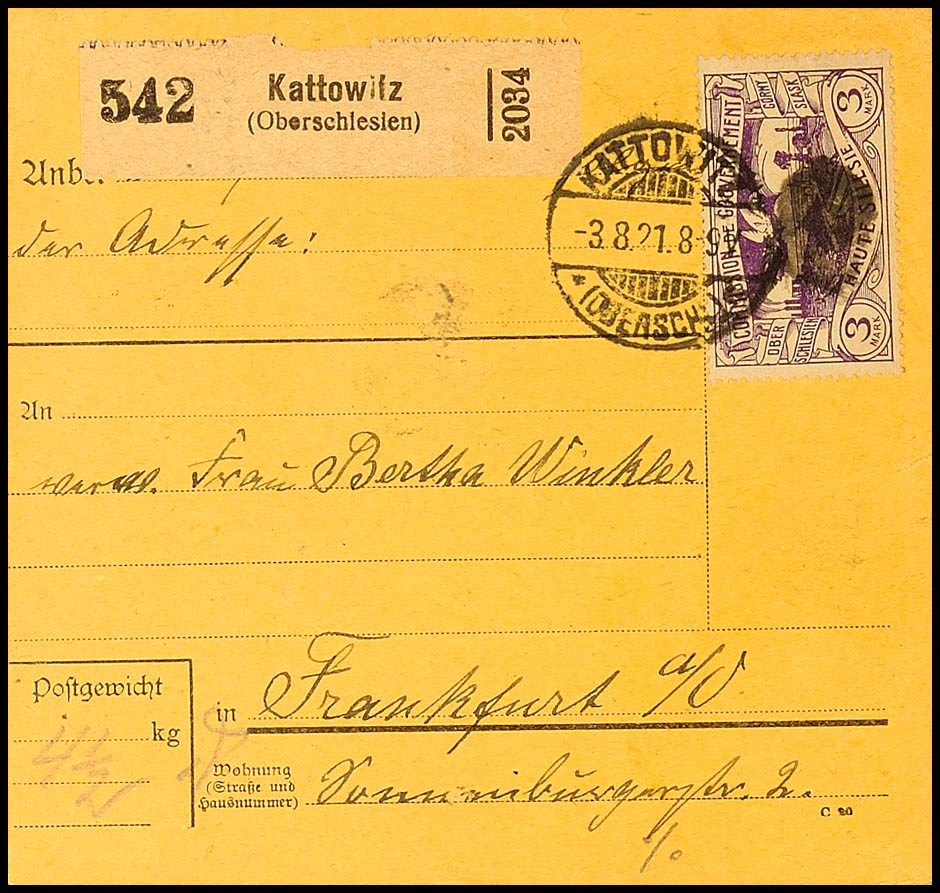 542
Kattowitz
(Oberschlesien)
2034
Anb.
der Adresse:
KATTOWITZ
-3.8.21.8-9
* (OBERSCHL
3 MARK
GORNY SLASK
COMMISSION DE GOUVERNEMENT
HAUTE SILESIE
OBER SCHLESIEN
3 MARK
An
verw. Frau Bertha Winkler
Postgewicht
kg
4½
in Frankfurt a/O
Wohnung
(Straße und
Hausnummer)
Sonnenburgerstr. 2.
C 20